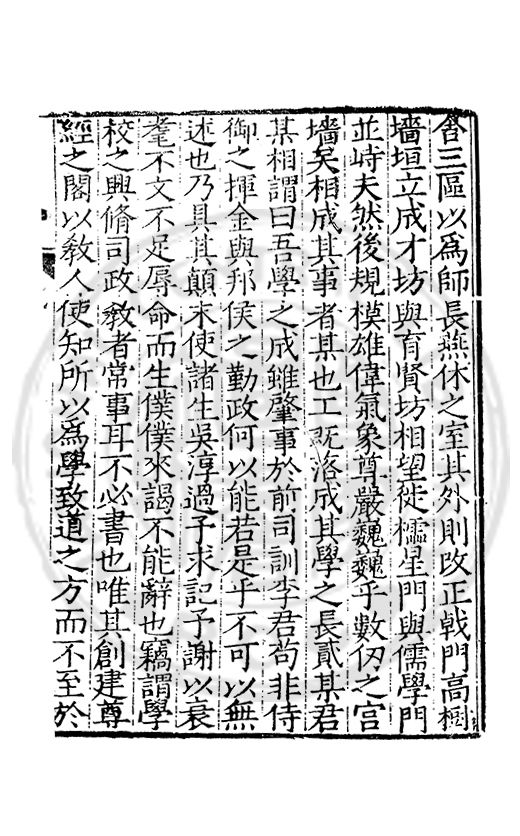 舎三區以為師長燕休之室其外則改正戟門高樹
墻垣立成才坊與育賢坊相望徙櫺星門與儒學門
並峙夫然後規模雄偉氣象尊嚴巍巍乎數仭之宫
墻矣相成其事者某也工既落成其學之長貳某君
某相謂曰吾學之成雖肇事於前司訓李君茍非侍
御之揮金與邦侯之勤政何以能若是乎不可以無
述也乃具其顛末使諸生吳淳過予求記予謝以衰
耄不文不足辱命而生僕僕來謁不能辭也竊謂學
校之興脩司政教者常事耳不必書也唯其創建尊
經之閣以敎人使知所以為學致道之方而不至於